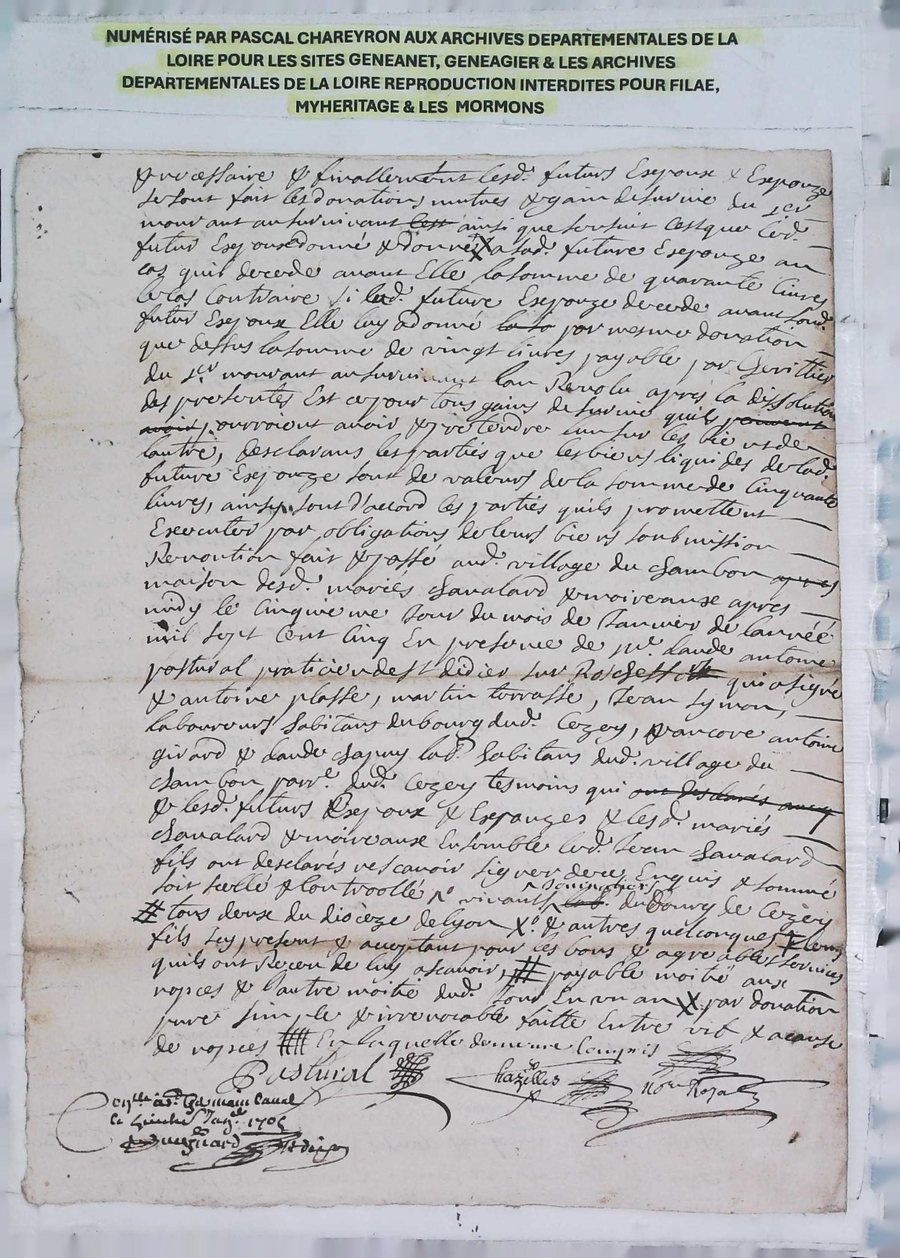 NUMÉRISÉ PAR PASCAL CHAREYRON AUX ARCHIVES DEPARTEMENTALES DE LA
LOIRE POUR LES SITES GENEANET, GENEAGIER & LES ARCHIVES
DEPARTEMENTALES DE LA LOIRE REPRODUCTION INTERDITES POUR FILAE,
MYHERITAGE & LES MORMONS
& finallement lesd. futurs Espoux & Espouze
se sont fait les donation, mutues & gain de survie du 1er
mourant au survivant ainsi que sensuit cest que led.
futur Espoux donne & donne X a lad. future Espouze au
cas quil decede avant Elle la somme de quarante livres
le cas contraire si lad. future Espouze decede avant sond.
futur Espoux Elle luy a donné par mesme donation
que dessus la somme de vingt livres payable par
du 1er mourant au survivant lan Revolu après la dissolution
des presentes Est ce pour tous gains de survie quils
pourroient avoir & pretendre lun sur les biens de
lautre, desclarans les parties que les biens liquides de lad.
future Espouze sont de valeurs de la somme de Cinquante
livres, ainsy sont d'accord les parties quils promettent
Executer par obligations de leurs biens soubmission
fait & passé aud. village du Chambon
maison desd. mariés Chavalard & moireaux apres
midy le Cinquieme Jour du mois de Janvier de lannéé
mil sept Cent Cinq En presence de me. Claude antoine
pastural praticien de st didier sur Rochefort qui a signé
& antoine plasse, martin terrasse, Jean Symon,
laboureurs habitans du bourg dud. Cezay, & ancore antoine
girard & Claude lab. habitans dud. village du
Chambon parr. dud. Cezay tesmoins qui
& lesd. futurs Espoux & Espouzes & lesd. mariés
Chavalard & moireaux Ensemble led. Jean Chavalard
fils ont desclarés ne scavoir signer de ce Enquis & sommé
soit scellé & Controollé vivant du Bourg de Cezay
# tous deux du diocèze de lyon X & autres quelconques
fils Icy present & acceptant pour les bons & agreables services
quils ont Receu de luy a scavoir, # payable moitié aux
nopces & l'autre moitié dud. Jour En un an X par donation
pure simple & irrevocable faitte Entre vif & a cause
de nopces ## En laquelle demeure Compris
Pastural Chazelles Royal
1705